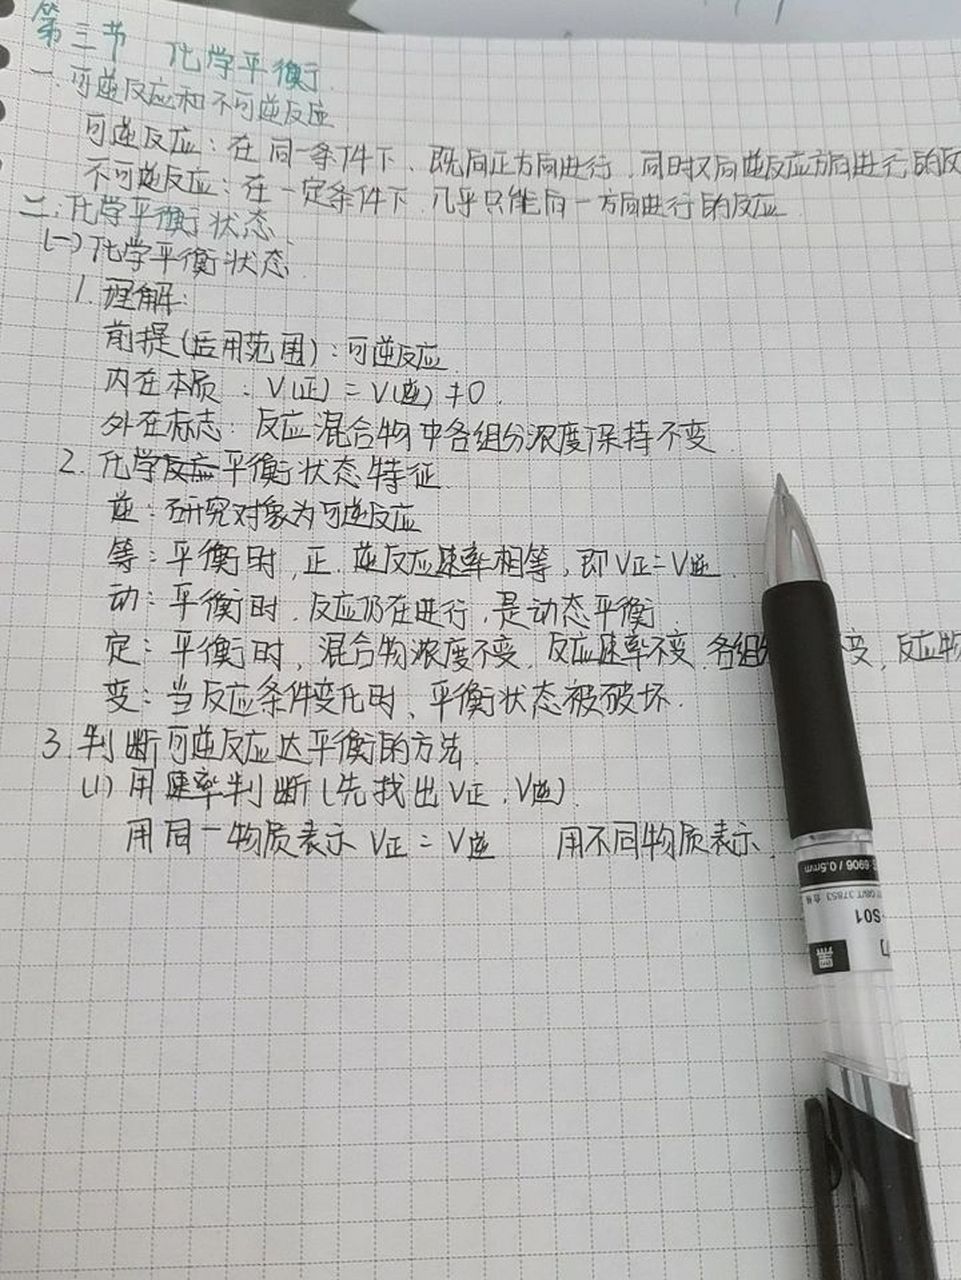 第三节 化学平衡
一.可逆反应和不可逆反应
可逆反应：在同一条件下、既向正方向进行，同时又向逆反应方向进行的反
不可逆反应：在一定条件下，几乎只能向一方向进行的反应
二.化学平衡状态
(一)化学平衡状态
1.理解：
前提(适用范围)：可逆反应
内在本质：V(正)=V(逆)≠0.
外在标志：反应混合物中各组分浓度保持不变.
2.化学平衡状态特征
逆：研究对象为可逆反应
等：平衡时,正.逆反应速率相等，即V正=V逆.
动：平衡时，反应仍在进行，是动态平衡
定：平衡时，混合物浓度不变，反应速率不变，各组 变，反应物
变：当反应条件变化时、平衡状态被破坏.
3.判断可逆反应达平衡的方法
(1)用速率判断(先找出V正、V逆)
用同一物质表示 V正=V逆 用不同物质表示
6906 / 0.5mm
GB/T 37853 合格
S01